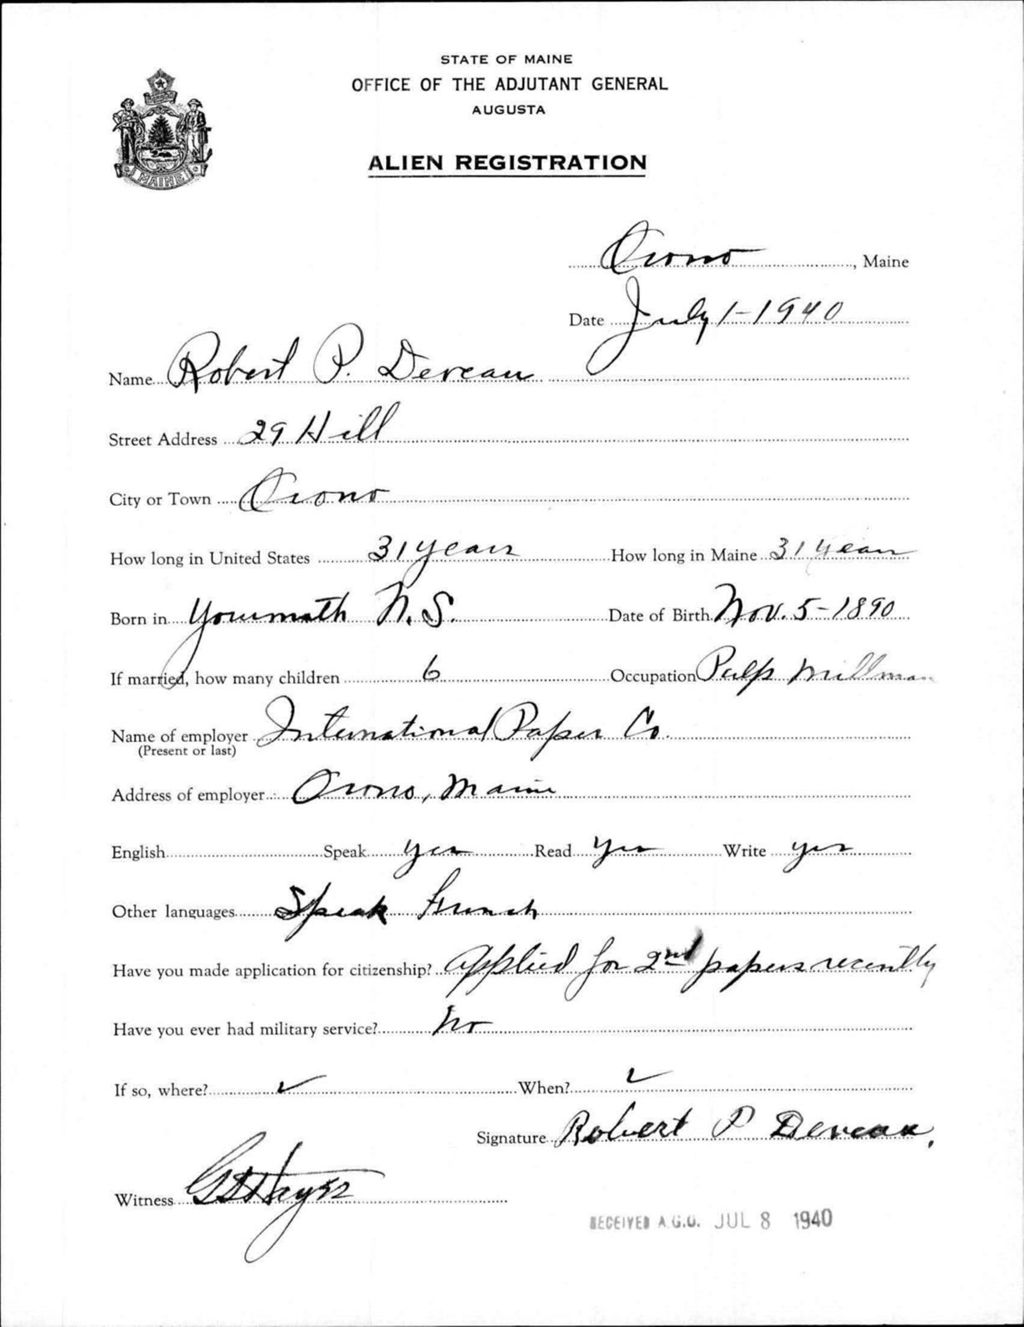 STATE OF MAINE
OFFICE OF THE ADJUTANT GENERAL
AUGUSTA
ALIEN REGISTRATION
MAINE
Orono, Maine
Date July 1-1940
Name Robert P. Deveau
Street Address 29 Hill
City or Town Orono
How long in United States 31 years How long in Maine 31 years
Born in Yourmoth N.S. Date of Birth Nov. 5-1890
If married, how many children 6 Occupation Pulp Millman
Name of employer International Paper Co.
(Present or last)
Address of employer Orono, Maine
English Speak yes Read yes Write yes
Other languages Speak French
Have you made application for citizenship? Applied for 2nd papers recently
Have you ever had military service? No
If so, where? ✓ When? ✓
Signature Robert P Deveau.
Witness Hayes
RECEIVED A.G.O. JUL 8 1940